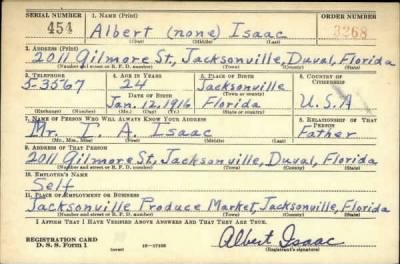 SERIAL NUMBER 1. NAME (Print) ORDER NUMBER
454 Albert (none) Isaac 3268
(First) (Middle) (Last)
2. ADDRESS (Print)
2011 Gilmore St., Jacksonville, Duval, Florida
(Number and street or R. F. D. number) (Town) (County) (State)
3. TELEPHONE 4. AGE IN YEARS 5. PLACE OF BIRTH 6. COUNTRY OF CITIZENSHIP
5-3567 24 Jacksonville
DATE OF BIRTH (Town or county)
Jan. 12, 1916 Florida U.S.A
(Exchange) (Number) (Mo.) (Day) (Yr.) (State or country)
7. NAME OF PERSON WHO WILL ALWAYS KNOW YOUR ADDRESS 8. RELATIONSHIP OF THAT PERSON
Mr. I. A. Isaac Father
(Mr., Mrs., Miss) (First) (Middle) (Last)
9. ADDRESS OF THAT PERSON
2011 Gilmore St., Jacksonville, Duval, Florida
(Number and street or R. F. D. number) (Town) (County) (State)
10. EMPLOYER'S NAME
Self
11. PLACE OF EMPLOYMENT OR BUSINESS
Jacksonville Produce Market, Jacksonville, Florida
(Number and street or R. F. D. number) (Town) (County) (State)
I AFFIRM THAT I HAVE VERIFIED ABOVE ANSWERS AND THAT THEY ARE TRUE.
REGISTRATION CARD
D. S. S. Form 1 (over) 16-17105 Albert Isaac
(Registrant's signature)